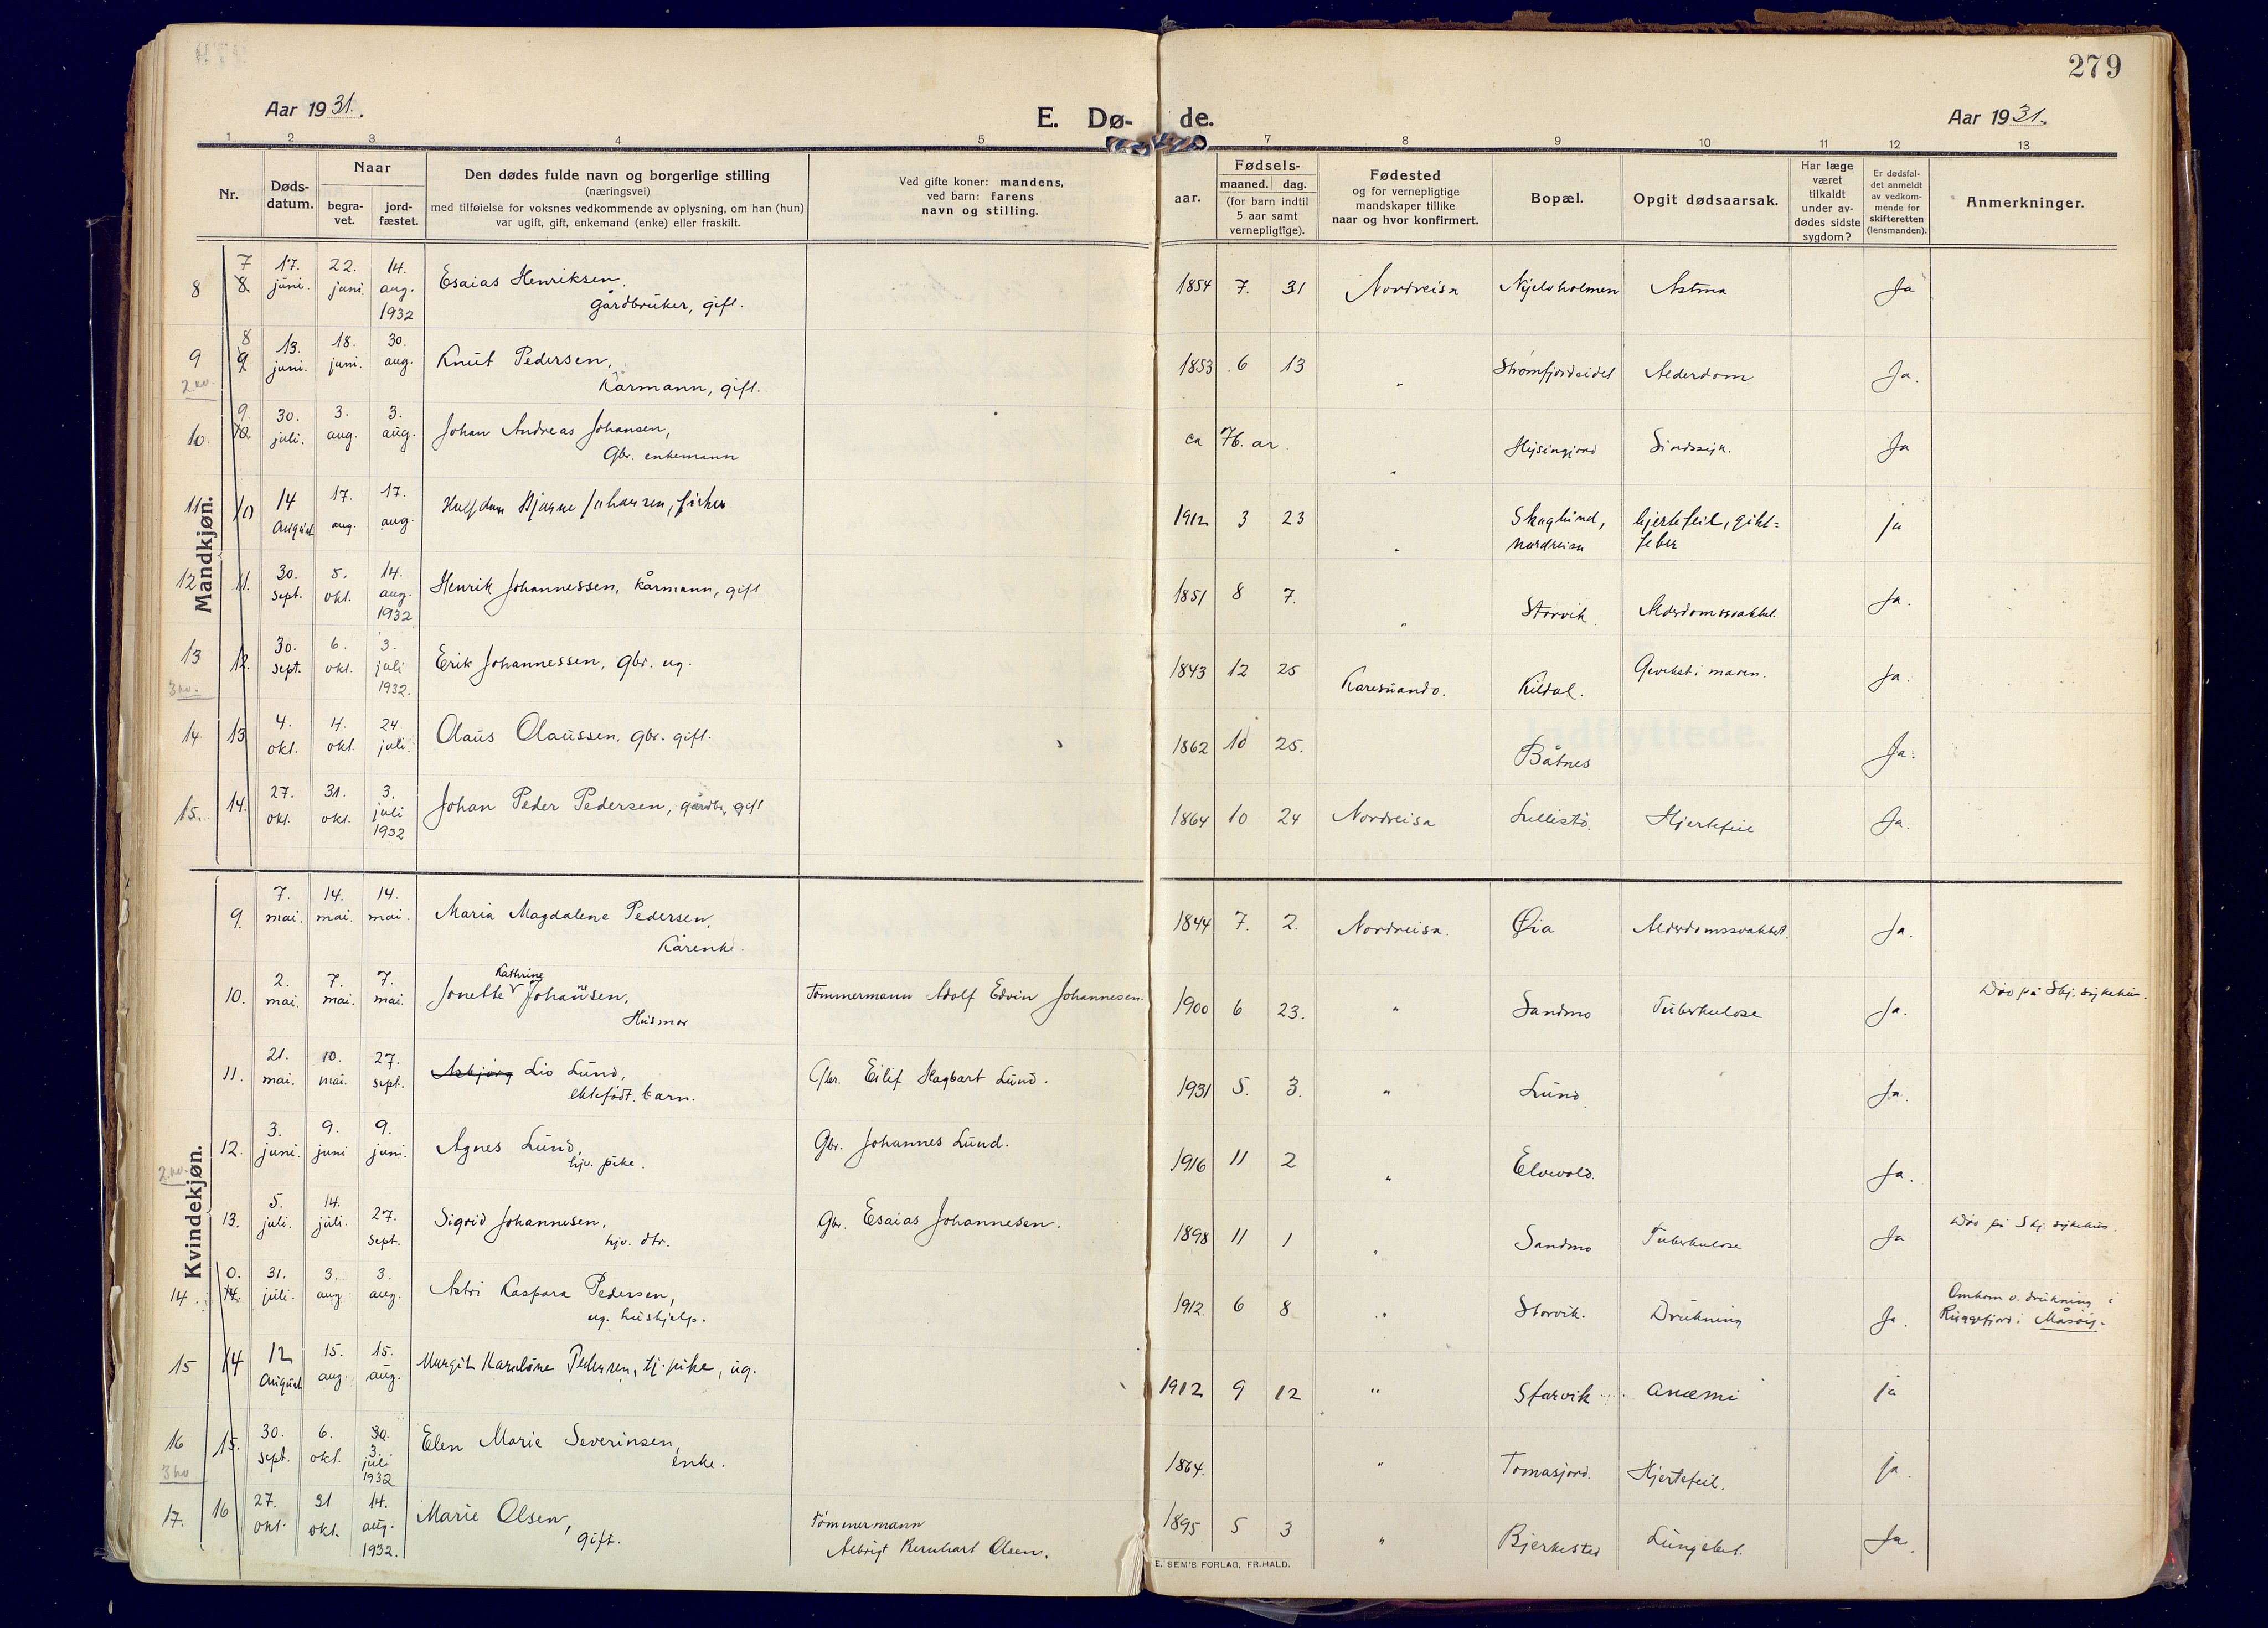 279
Aar 1931.
E. Dø- de.
Aar 1931.
1 2 3 4 5 7 8 9 10 11 12 13
Nr.
Døds-
datum.
Naar
begra-
vet.
jord-
fæstet.
Den dødes fulde navn og borgerlige stilling
(næringsvei)
med tilføielse for voksnes vedkommende av oplysning, om han (hun)
var ugift, gift, enkemand (enke) eller fraskilt.
Ved gifte koner: mandens,
ved barn: farens
navn og stilling.
Fødsels-
aar.
maaned. dag.
(for barn indtil
5 aar samt
vernepligtige).
Fødested
og for vernepligtige
mandskaper tillike
naar og hvor konfirmert.
Bopæl.
Opgit dødsaarsak.
Har læge
været
tilkaldt
under av-
dødes sidste
sygdom?
Er dødsfal-
det anmeldt
av vedkom-
mende for
skifteretten
(lensmanden).
Anmerkninger.
Mandkjøn.
8 7 8. 17. juni. 22. juni. 14. aug. 1932 Esaias Henriksen, gårdbruker, gift. 1854 7. 31 Nordreisa Njelvholmen Astma Ja
9 8 9 13. juni. 18. juni. 30. aug. Knut Pedersen, Kårmann, gift. 1853 6 13 " Strømfjordeidet Alderdom Ja.
2.kv.
10. 9. 10. 30. juli. 3. aug. 3. aug. Johan Andreas Johansen, Gbr. enkemann ca 76. år. " Hysingjord Sindssyk. Ja
11 10 14 August 17. aug. 17. aug. Halfdan Bjarne Johansen, fisker 1912 3 23 " Skoglund, Nordreisa hjertefeil, gikt=feber ja
12 11. 30. sept. 5. okt. 14. aug. 1932 Henrik Johannessen, kårmann, gift 1851 8 7. " Storvik Alderdomssvakhet. Ja.
13 12. 30. sept. 6. okt. 3. juli 1932. Erik Johannessen, gbr. ug. 1843 12 25 Karesuando. Kildal. Gevekst i maven. Ja.
3 kv.
14 13 4. okt. 4. okt. 24. juli. Olaus Olaussen, gbr. gift. 1862 10 25. Båtnes Ja.
15. 14. 27. okt. 31. okt. 3. juli 1932 Johan Peder Pedersen, gårdbr, gift 1864 10 24 Nordreisa Sullistø. Hjertefeil Ja.
Kvindekjøn.
9. 7. mai. 14. mai. 14. mai. Maria Magdalene Pedersen, Kårenke. 1844 7. 2. Nordreisa. Øia Alderdomssvakhet. Ja.
10. 2. mai. 7. mai. 7. mai. Jonette Kathrine Johannesen, Husmor Tømmermann Adolf Edvin Johannesen. 1900 6 23. " Sandmo Tuberkulose Ja. Død på Skj. sykehus.
11. 21. mai. 10. mai. 27. sept. Asbjørg Liv Lund, ektefødt. barn. Gbr. Eilif Hagbart Lund. 1931 5. 3. " Lund Ja.
12. 3. juni. 9. juni 9. juni. Agnes Lund, hjv. pike. Gbr. Johannes Lund. 1916 11 2 " Elvevold. Ja.
2.kv.
13. 5. juli. 14. juli. 27. sept. Sigrid Johannesen, hjv. dtr. Gbr. Esaias Johannesen. 1898 11 1 " Sandmo Tuberkulose Ja Død på Skj. sykehus.
14. 0. 14. 31. juli. 3. aug. 3. aug. Astri Kaspara Pedersen, ug. hushjelp. 1912 6 8 " Storvik. Drukning Ja. Omkom v. drukning i Ryggefjord i Måsøy.
15 14 12 August 15. aug. 15. aug. Margit Karoline Pedersen, tj. pike, ug. 1912 9 12 " Storvik anæmi ja
16 15. 30. sept. 6. okt. 30. 3. juli 1932 Elen Marie Severinsen, enke. 1864. " Tomasjord. Hjertefeil. ja.
3 kv
17. 16 27. okt. 31 okt. 14. aug. 1932. Marie Olsen, gift. Tømmermann Albrigt Bernhart Olsen. 1895 5 3 " Bjerkested Lungebet. Ja.
E. SEM'S FORLAG, FR.HALD.